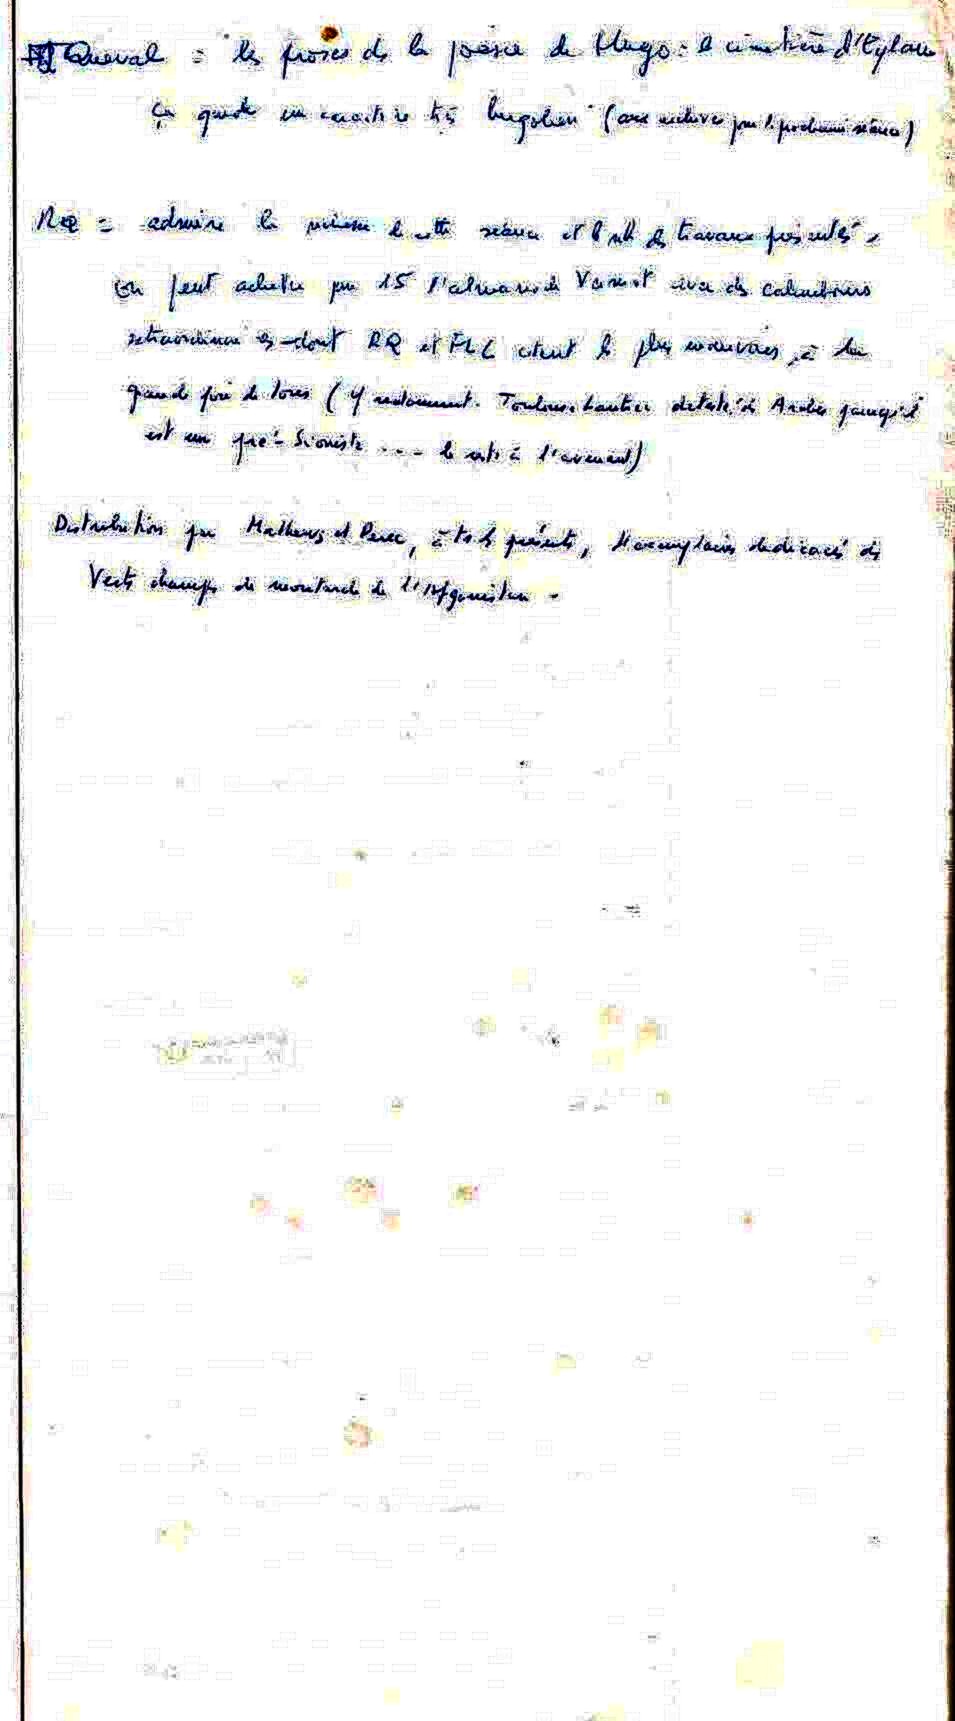 Queval = les proses de la poésie de Hugo : le cimetière d'Eylau
ça garde un caractère très hugolien (aux archives pour la prochaine séance)
RQ = admire la richesse de cette séance et le nb des travaux présentés.
on peut acheter pour 15 l'almanach Vermot avec des calembours
extraordinaires dont RQ et FLL citent les plus mauvais, à la
grande joie de tous (cf notamment. Toulouse-Lautrec détesté des Arabes parcequ'il
est un pro-Sioniste ... le reste à l'avenant)
Distribution par Mathews et Perec, à ts les présents, d'exemplaires dédicacés des
Verts champs de moutarde de l'Afganistan.